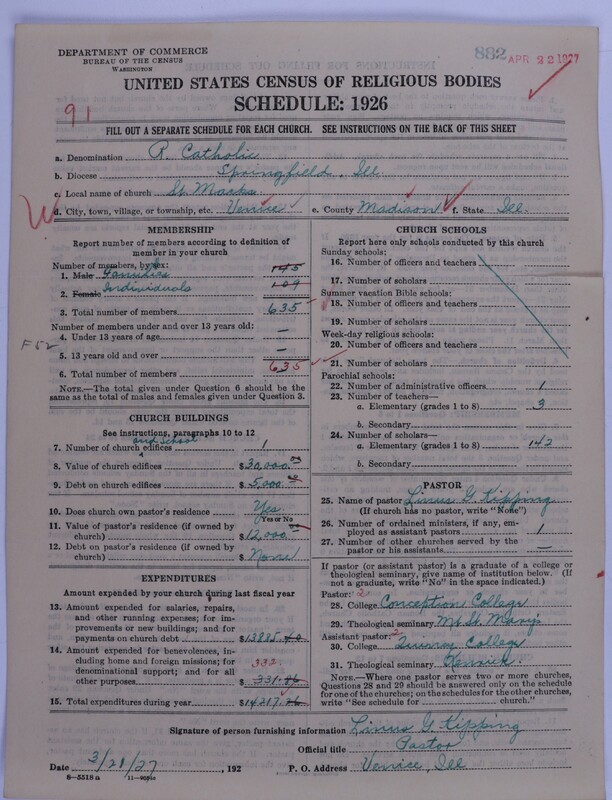 DEPARTMENT OF COMMERCE
BUREAU OF THE CENSUS
WASHINGTON
882 APR 22 1927
UNITED STATES CENSUS OF RELIGIOUS BODIES
SCHEDULE: 1926
91
FILL OUT A SEPARATE SCHEDULE FOR EACH CHURCH. SEE INSTRUCTIONS ON THE BACK OF THIS SHEET
a. Denomination R. Catholic
b. Diocese Springfield, Ill.
c. Local name of church St. Marks
d. City, town, village, or township, etc. Venice e. County Madison f. State Ill.
MEMBERSHIP
Report number of members according to definition of member in your church
Number of members, by sex:
1. Male Families 145
2. Female Individuals 109
3. Total number of members 635
Number of members under and over 13 years old:
4. Under 13 years of age —
F52
5. 13 years old and over —
6. Total number of members 635
NOTE.—The total given under Question 6 should be the same as the total of males and females given under Question 3.
CHURCH BUILDINGS
See instructions, paragraphs 10 to 12
and School
7. Number of church edifices 1
8. Value of church edifices $30,000.00
9. Debt on church edifices $5,000.00
10. Does church own pastor's residence? Yes
(Yes or No)
11. Value of pastor's residence (if owned by church) $12,000.
12. Debt on pastor's residence (if owned by church) $None
EXPENDITURES
Amount expended by your church during last fiscal year
13. Amount expended for salaries, repairs, and other running expenses; for improvements or new buildings; and for payments on church debt $13885.40
14. Amount expended for benevolences, including home and foreign missions; for denominational support; and for all other purposes 332 $331.86
15. Total expenditures during year $14217.26
CHURCH SCHOOLS
Report here only schools conducted by this church
Sunday schools:
16. Number of officers and teachers
17. Number of scholars
Summer vacation Bible schools:
18. Number of officers and teachers
19. Number of scholars
Week-day religious schools:
20. Number of officers and teachers
21. Number of scholars
Parochial schools:
22. Number of administrative officers 1
23. Number of teachers—
a. Elementary (grades 1 to 8) 3
b. Secondary
24. Number of scholars—
a. Elementary (grades 1 to 8) 142
b. Secondary
PASTOR
25. Name of pastor Linus G Kipping
(If church has no pastor, write "None")
26. Number of ordained ministers, if any, employed as assistant pastors 1
27. Number of other churches served by the pastor or his assistants —
If pastor (or assistant pastor) is a graduate of a college or theological seminary, give name of institution below. (If not a graduate, write "No" in the space indicated.)
Pastor: 2
28. College Conception College
29. Theological seminary Mt St. Mary's
Assistant pastor: 2
30. College Quincy College
31. Theological seminary Kenrick.
NOTE.—Where one pastor serves two or more churches, Questions 28 and 29 should be answered only on the schedule for one of the churches; on the schedules for the other churches, write "See schedule for church."
Signature of person furnishing information Linus G. Kipping
Official title Pastor
Date 3/21/27, 192 P. O. Address Venice, Ill
8—5518 a